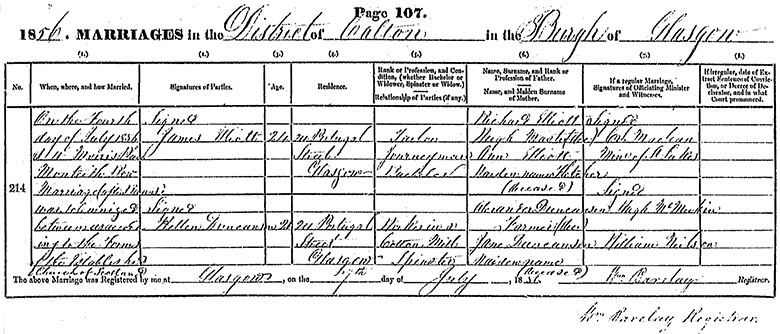 Page 107.
1856. MARRIAGES in the District of Calton in the Burgh of Glasgow
(1.) (2.) (3.) (4.) (5.) (6.) (7.) (8.)
No. When, where, and how Married. Signatures of Parties. Age. Residence. Rank or Profession, and Condition, (whether Bachelor or Widower, Spinster or Widow.) Relationship of Parties (if any.) Name, Surname, and Rank or Profession of Father. Name, and Maiden Surname of Mother. If a regular Marriage, Signatures of Officiating Minister and Witnesses. If irregular, date of Extract Sentence of Conviction, or Decree of Declarator, and in what Court pronounced.
214
On the Fourth
day of July 1856
Marriage
was solemnized
between us according
to the Forms
of the Established
Church of Scotland
Signed
James Elliott
24
Portugal
Street
Glasgow
Tailor
Journeyman
Bachelor
Richard Elliott
Ann Elliott
Maiden name Fletcher
(deceased)
Signed
Maclean
Minr. of
Signed
Hellen Duncanson
21
Portugal
Street
Glasgow
Cotton Mill
Spinster
Alexander Duncanson
Farmer
Jane Duncanson
Maiden name
(deceased)
Signed
Hugh
William Neilson
The above Marriage was Registered by me at Glasgow, on the 7th day of July, 1856. Wm. Barclay Registrar.
Wm. Barclay Registrar.